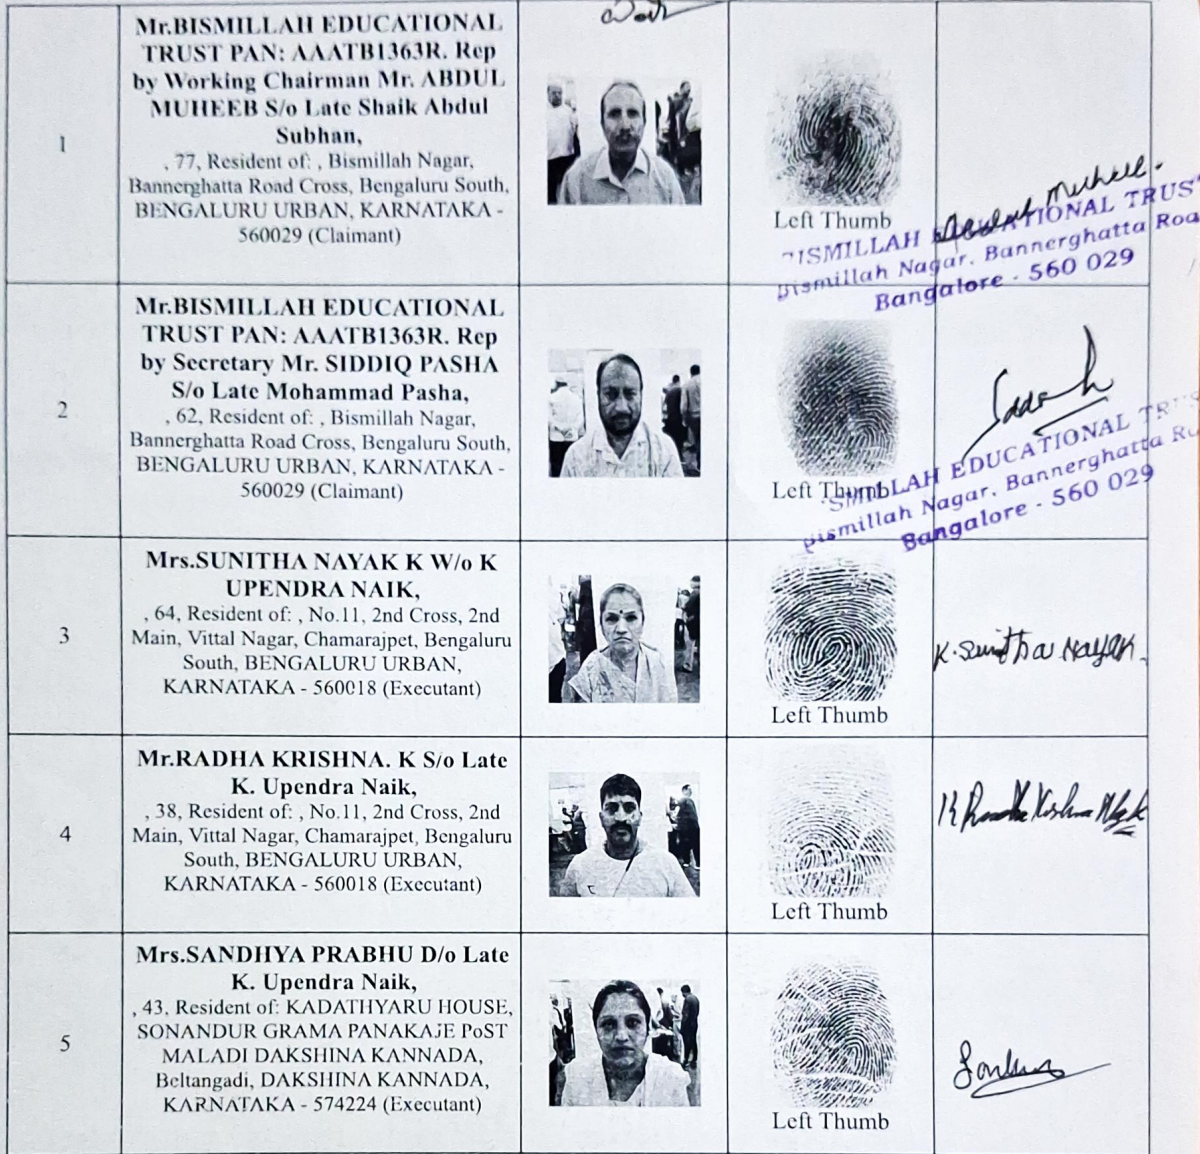 1
Mr.BISMILLAH EDUCATIONAL
TRUST PAN: AAATB1363R. Rep
by Working Chairman Mr. ABDUL
MUHEEB S/o Late Shaik Abdul
Subhan,
, 77, Resident of: , Bismillah Nagar,
Bannerghatta Road Cross, Bengaluru South,
BENGALURU URBAN, KARNATAKA -
560029 (Claimant)
Left Thumb
Abdul Muheeb.
BISMILLAH EDUCATIONAL TRUST
Bismillah Nagar, Bannerghatta Roa
Bangalore - 560 029
2
Mr.BISMILLAH EDUCATIONAL
TRUST PAN: AAATB1363R. Rep
by Secretary Mr. SIDDIQ PASHA
S/o Late Mohammad Pasha,
, 62, Resident of: , Bismillah Nagar,
Bannerghatta Road Cross, Bengaluru South,
BENGALURU URBAN, KARNATAKA -
560029 (Claimant)
Left Thumb
SMILLAH EDUCATIONAL TRUS
Bismillah Nagar, Bannerghatta Ro
Bangalore - 560 029
3
Mrs.SUNITHA NAYAK K W/o K
UPENDRA NAIK,
, 64, Resident of: , No.11, 2nd Cross, 2nd
Main, Vittal Nagar, Chamarajpet, Bengaluru
South, BENGALURU URBAN,
KARNATAKA - 560018 (Executant)
Left Thumb
K. Sunitha Nayak.
4
Mr.RADHA KRISHNA. K S/o Late
K. Upendra Naik,
, 38, Resident of: , No.11, 2nd Cross, 2nd
Main, Vittal Nagar, Chamarajpet, Bengaluru
South, BENGALURU URBAN,
KARNATAKA - 560018 (Executant)
Left Thumb
K Radha Krishna Nayak
5
Mrs.SANDHYA PRABHU D/o Late
K. Upendra Naik,
, 43, Resident of: KADATHYARU HOUSE,
SONANDUR GRAMA PANAKAJE PoST
MALADI DAKSHINA KANNADA,
Beltangadi, DAKSHINA KANNADA,
KARNATAKA - 574224 (Executant)
Left Thumb